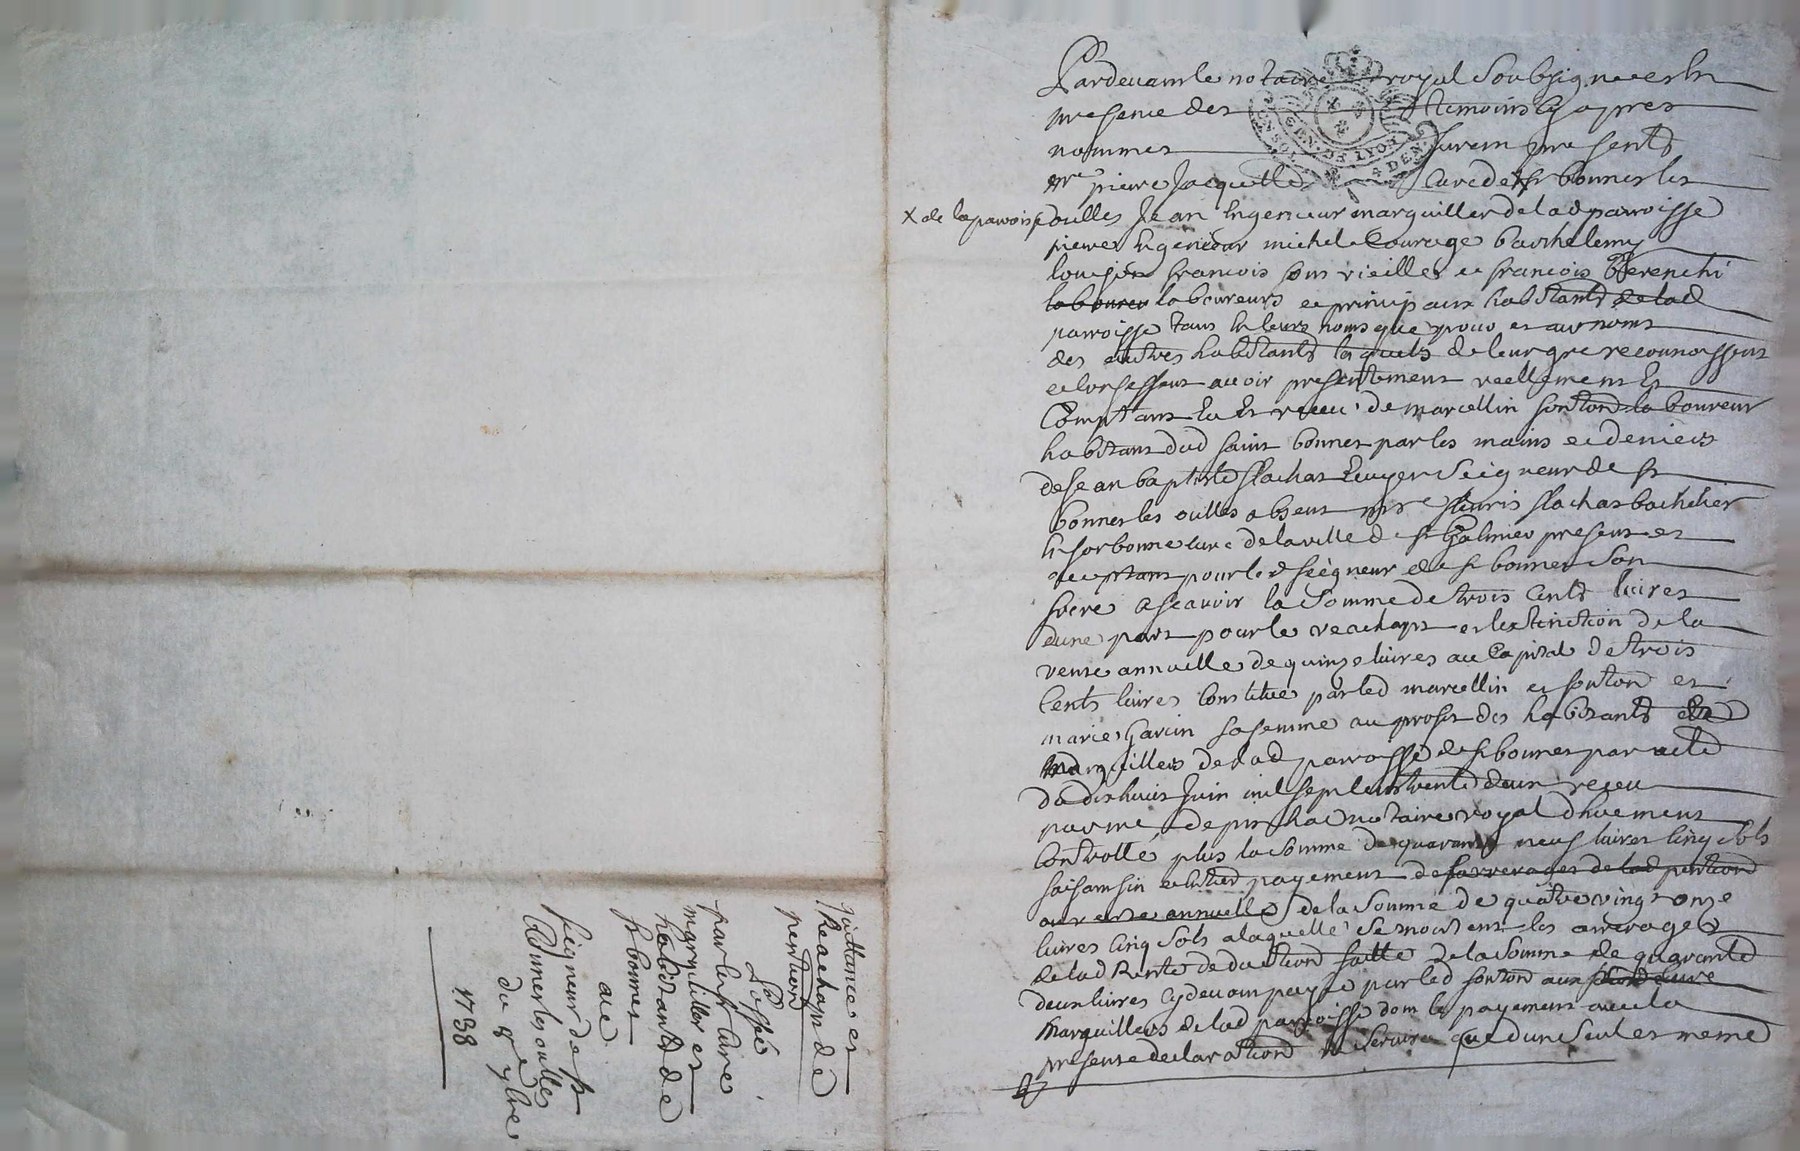 Pardevant le notaire royal soubsigne et en
presence des temoins cy apres
nommes furent presents
mre pierre Jacquette cure de st bonnet les
x de la paroisse
oulles Jean Ingenieur marguiller de lad parroisse
pierre Ingenieur michel Courage barthelemy
francois vieilles et francois
laboureurs et principaux habitants de lad
parroisse tant en leurs noms que pour et aux noms
des autres habitants lesquels de leur gre reconnoissent
et confessent avoir presentement reellement et
Comptant eu et receu de marcellin fonton laboureur
habitant dud saint bonnet par les mains et deniers
de Jean baptiste flachat Ecuyer Seigneur de st
bonnet les oulles absent mre fleuris flachat bachelier
en sorbonne cure de la ville de st Galmier present et
acceptant pour led seigneur de st bonnet son
frere a scavoir la somme de trois cents livres
dune part pour le reachapt et lextinction de la
rente annuelle de quinze livres au Capital de trois
Cents livres Constitue par led marcellin fonton et
marie Garcin sa femme au profit des habitants et
marguillers de lad parroisse de st bonnet par acte
du dixhuit Juin mil sept cent trente deux receu
par me notaire royal duement
Controllé plus la somme de quarante neuf livres cinq sols
faisant fin et entier payement des arrerages de lad pention
ou rente annuelle de la somme de quatre vingt onze
livres cinq sols a laquelle se montent les arrerages
de lad Rente deduction faitte de la somme de quarante
deux livres cy devant payé par led fonton aux
marguillers de lad parroisse dont le payement avec la
presente declaration ne servira que dun seul et meme
Quittance et
Reachapt de
pention
Passé
par les st Cure
marguiller et
habitants de
st bonnet
au
seigneur de st
Bonnet les oulles
du 8e xbre
1738